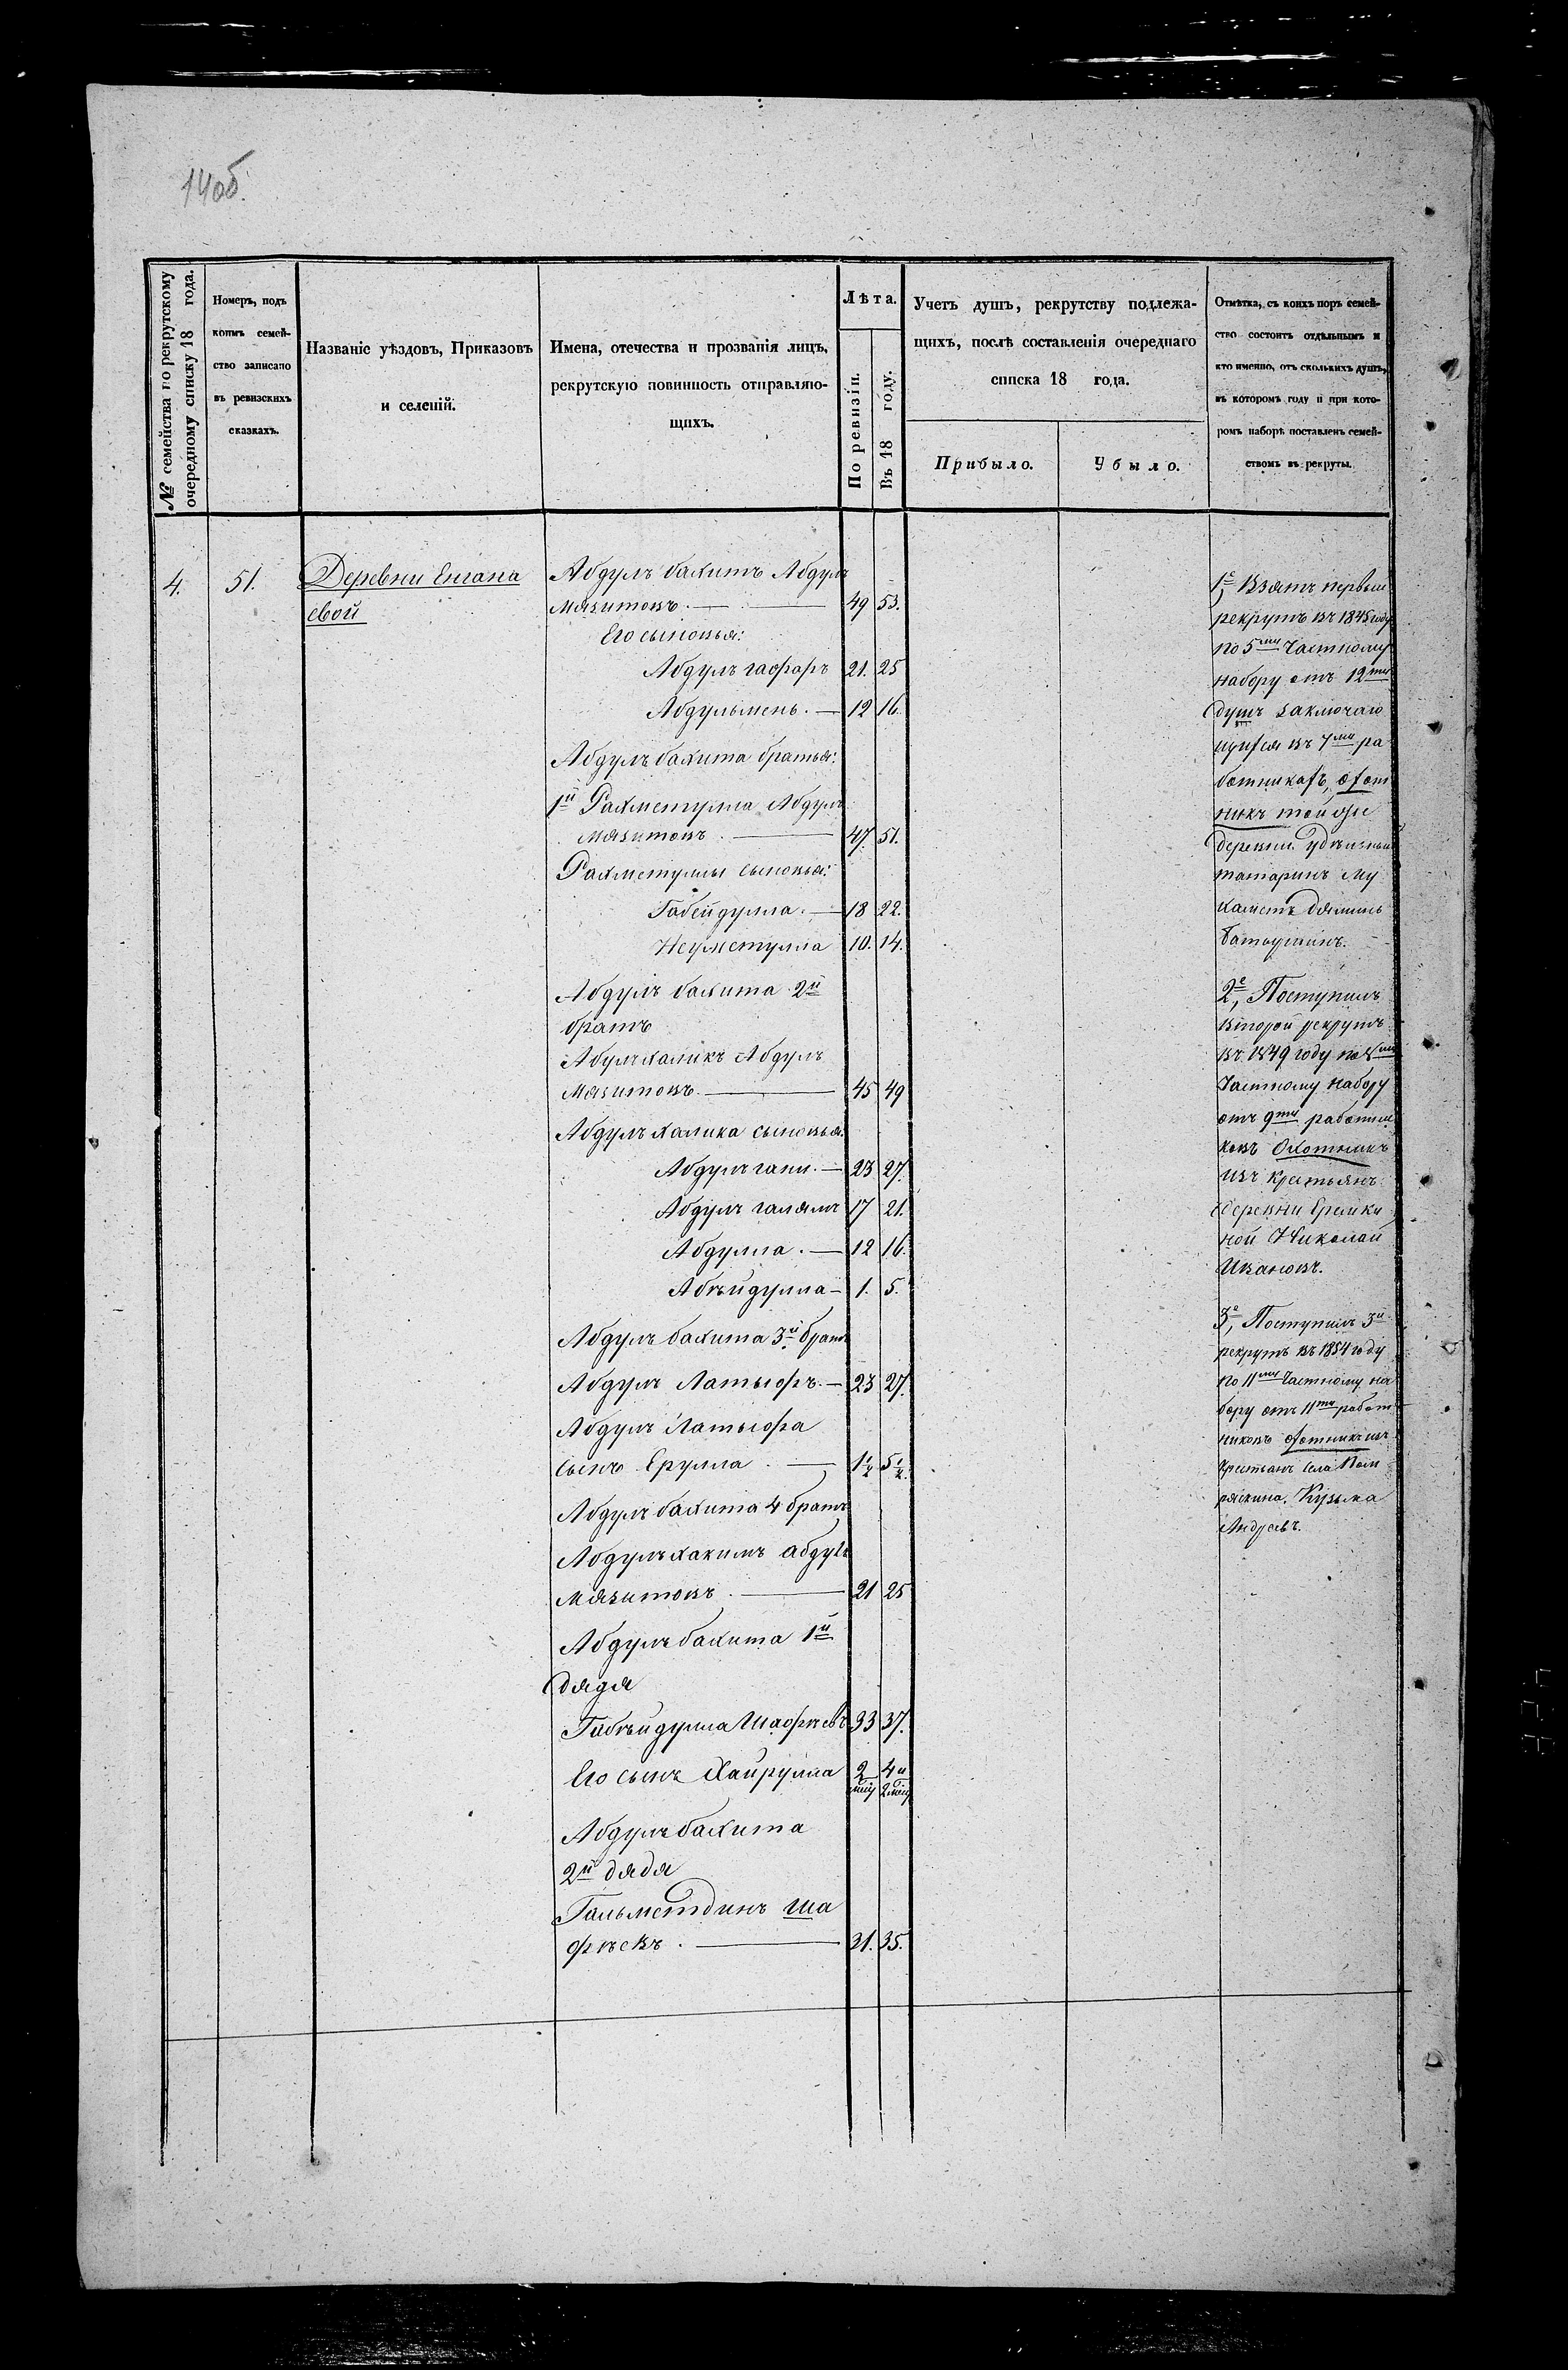 14об.
№ семейства по рекрутскому
очередному списку 18 года.
Номеръ, подъ
коимъ семей-
ство записано
въ ревизскихъ
сказкахъ.
Названіе уѣздовъ, Приказовъ
и селеній.
Имена, отечества и прозванія лицъ,
рекрутскую повинность отправляю-
щихъ.
Лѣта.
По ревизіи.
Въ 18 году.
Учетъ душъ, рекрутству подлежа-
щихъ, послѣ составленія очереднаго
списка 18 года.
Прибыло.
Убыло.
Отмѣтка, съ коихъ поръ семей-
ство состоитъ отдѣльнымъ и
кто именно, отъ сколькихъ душъ,
въ которомъ году и при кото-
ромъ наборѣ поставленъ семей-
ствомъ въ рекруты.
4. 51. Деревни Енгана
евой
Абдулъ бакитъ Абдулъ
мязитовъ. 49 53.
Его сыновья:
Абдулъ гафаръ 21. 25
Абдулъменъ. 12 16.
Абдулъ бакита братья:
1й Рахметулла Абдулъ
мязитовъ. 47. 51.
Рахметуллы сыновья:
Габейдулла. 18 22.
Неуметулла 10. 14.
Абдулъ бакита 2й
братъ
Абулъхаликъ Абдулъ
мязитовъ. 45 49
Абдулъ халика сыновья:
Абдулъ гани. 23 27.
Абдулъ галямъ 17 21.
Абдулла. 12 16.
Абѣйдулла 1. 5.
Абдулъ бакита 3й братъ
Абдулъ Латыфъ. 23 27.
Абдулъ Латыфа
сынъ Ерулла. 1½ 5½.
Абдулъ бакита 4 братъ
Абдулъ хакимъ абдулъ
мязитовъ. 21 25
Абдулъ бакита 1й
дядя
Габѣйдулла Шафѣевъ 33 37.
Его сынъ Хайрулла 2 4 и
мцу 2 мцу
Абдулъ бакита
2й дядя
Гальметдинъ Ша
фѣевъ. 31. 35.
1е, Взятъ первый
рекрутъ въ 1845 году
по 5му Частному
набору отъ 12ти
душъ заключаю
щихся въ 7ми ра
ботникахъ, охот
никъ той же
деревни удѣльный
татаринъ Му
хаметъ
2е, Поступилъ
второй рекрутъ
въ 1849 году по 8му
Частному набору
отъ 9ти работни
ковъ Охотникъ
изъ крестьянъ
деревни Еремки
ной Николай
Ивановъ.
3е, Поступилъ 3й
рекрутъ въ 1854 году
по 11му Частному на
бору отъ 11ти работ
никовъ охотникъ изъ
крестьянъ села Пом
ряскина. Кузьма
Андреевъ.